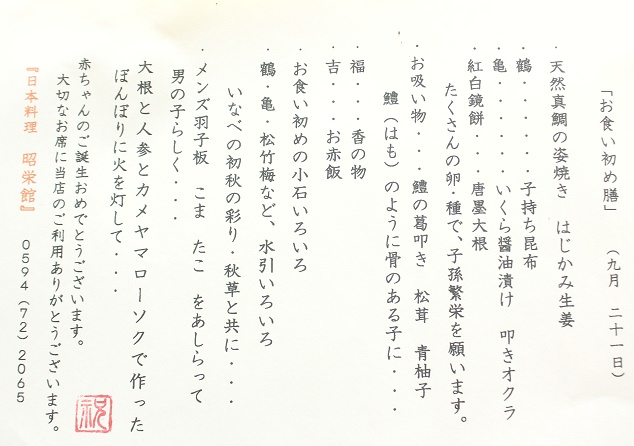 「お食い初め膳」　（九月　二十一日）
・天然真鯛の姿焼き　はじかみ生姜
・鶴・・・・・子持ち昆布
・亀・・・・・いくら醤油漬け　叩きオクラ
・紅白鏡餅・・・唐墨大根
たくさんの卵・種で、子孫繁栄を願います。
・お吸い物・・・鱧の葛叩き　松茸　青柚子
鱧（はも）のように骨のある子に・・・・
・福・・・香の物
・吉・・・お赤飯
・お食い初めの小石いろいろ
・鶴・亀・松竹梅など、水引いろいろ
いなべの初秋の彩り・秋草と共に・・・
・メンズ羽子板　こま　たこ　をあしらって
男の子らしく・・・
大根と人参とカメヤマローソクで作った
ぼんぼりに火を灯して・・・
赤ちゃんのご誕生おめでとうございます。
大切なお席に当店のご利用ありがとうございます。
『日本料理　昭栄館』　0594（72）2065
祝